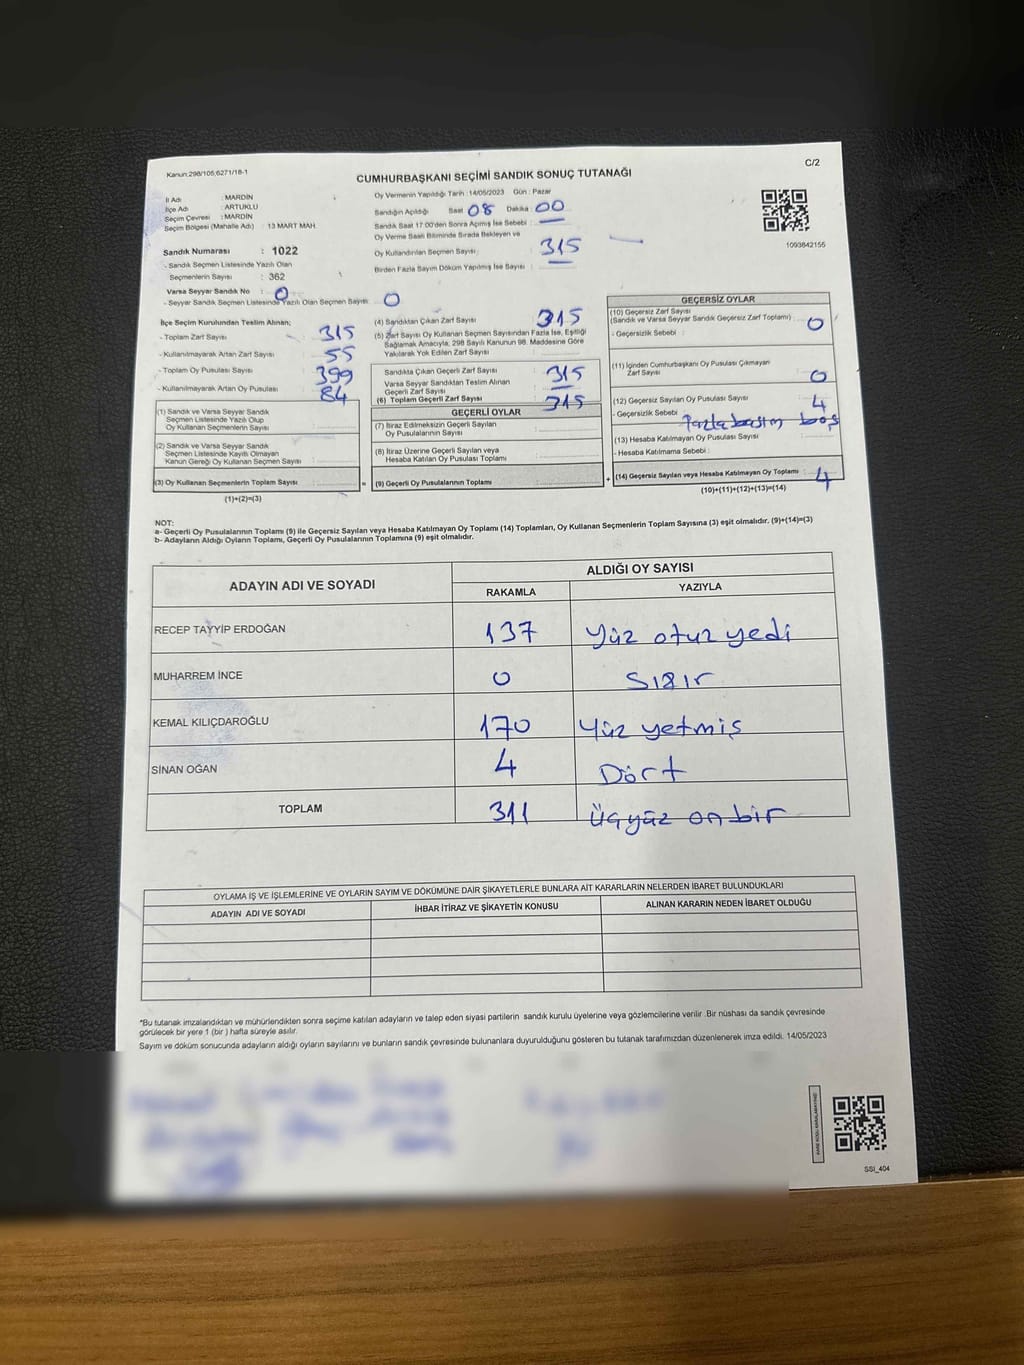 Kanun:298/105;6271/18-1
C/2
CUMHURBAŞKANI SEÇİMİ SANDIK SONUÇ TUTANAĞI
İl Adı : MARDİN
İlçe Adı : ARTUKLU
Seçim Çevresi : MARDİN
Seçim Bölgesi (Mahalle Adı) : 13 MART MAH.
Sandık Numarası : 1022
- Sandık Seçmen Listesinde Yazılı Olan
Seçmenlerin Sayısı : 362
Varsa Seyyar Sandık No : 0
- Seyyar Sandık Seçmen Listesinde Yazılı Olan Seçmen Sayısı 0
Oy Vermenin Yapıldığı Tarih :14/05/2023 Gün : Pazar
Sandığın Açıldığı Saat 08 Dakika : 00
Sandık Saat 17:00'den Sonra Açılmış İse Sebebi :
Oy Verme Saati Bitiminde Sırada Bekleyen ve
Oy Kullandırılan Seçmen Sayısı : 315
Birden Fazla Sayım Döküm Yapılmış İse Sayısı :
1093842156
İlçe Seçim Kurulundan Teslim Alınan;
- Toplam Zarf Sayısı : 315
- Kullanılmayarak Artan Zarf Sayısı : 55
- Toplam Oy Pusulası Sayısı : 399
- Kullanılmayarak Artan Oy Pusulası : 84
(1) Sandık ve Varsa Seyyar Sandık
Seçmen Listesinde Yazılı Olup
Oy Kullanan Seçmenlerin Sayısı :
(2) Sandık ve Varsa Seyyar Sandık
Seçmen Listesinde Kayıtlı Olmayan
Kanun Gereği Oy Kullanan Seçmen Sayısı :
(3) Oy Kullanan Seçmenlerin Toplam Sayısı :
(1)+(2)=(3)
=
(4) Sandıktan Çıkan Zarf Sayısı : 315
(5) Zarf Sayısı Oy Kullanan Seçmen Sayısından Fazla İse, Eşitliği
Sağlamak Amacıyla; 298 Sayılı Kanunun 98. Maddesine Göre
Yakılarak Yok Edilen Zarf Sayısı :
Sandıkta Çıkan Geçerli Zarf Sayısı : 315
Varsa Seyyar Sandıktan Teslim Alınan
Geçerli Zarf Sayısı :
(6) Toplam Geçerli Zarf Sayısı : 315
GEÇERLİ OYLAR
(7) İtiraz Edilmeksizin Geçerli Sayılan
Oy Pusulalarının Sayısı :
(8) İtiraz Üzerine Geçerli Sayılan veya
Hesaba Katılan Oy Pusulası Toplamı :
(9) Geçerli Oy Pusulalarının Toplamı :
+
GEÇERSİZ OYLAR
(10) Geçersiz Zarf Sayısı
(Sandık ve Varsa Seyyar Sandık Geçersiz Zarf Toplamı) : 0
- Geçersizlik Sebebi :
(11) İçinden Cumhurbaşkanı Oy Pusulası Çıkmayan
Zarf Sayısı : 0
(12) Geçersiz Sayılan Oy Pusulası Sayısı : 4
- Geçersizlik Sebebi : Fazla basım boş
(13) Hesaba Katılmayan Oy Pusulası Sayısı :
- Hesaba Katılmama Sebebi :
(14) Geçersiz Sayılan veya Hesaba Katılmayan Oy Toplamı : 4
(10)+(11)+(12)+(13)=(14)
NOT:
a- Geçerli Oy Pusulalarının Toplamı (9) ile Geçersiz Sayılan veya Hesaba Katılmayan Oy Toplamı (14) Toplamları, Oy Kullanan Seçmenlerin Toplam Sayısına (3) eşit olmalıdır. (9)+(14)=(3)
b- Adayların Aldığı Oyların Toplamı, Geçerli Oy Pusulalarının Toplamına (9) eşit olmalıdır.
ADAYIN ADI VE SOYADI
ALDIĞI OY SAYISI
RAKAMLA YAZIYLA
RECEP TAYYİP ERDOĞAN 137 Yüz otuz yedi
MUHARREM İNCE 0 Sıfır
KEMAL KILIÇDAROĞLU 170 Yüz yetmiş
SİNAN OĞAN 4 Dört
TOPLAM 311 Üçyüz on bir
OYLAMA İŞ VE İŞLEMLERİNE VE OYLARIN SAYIM VE DÖKÜMÜNE DAİR ŞİKAYETLERLE BUNLARA AİT KARARLARIN NELERDEN İBARET BULUNDUKLARI
ADAYIN ADI VE SOYADI İHBAR İTİRAZ VE ŞİKAYETİN KONUSU ALINAN KARARIN NEDEN İBARET OLDUĞU
*Bu tutanak imzalandıktan ve mühürlendikten sonra seçime katılan adayların ve talep eden siyasi partilerin sandık kurulu üyelerine veya gözlemcilerine verilir .Bir nüshası da sandık çevresinde
görülecek bir yere 1 (bir ) hafta süreyle asılır.
Sayım ve döküm sonucunda adayların aldığı oyların sayılarını ve bunların sandık çevresinde bulunanlara duyurulduğunu gösteren bu tutanak tarafımızdan düzenlenerek imza edildi. 14/05/2023
SSI_404